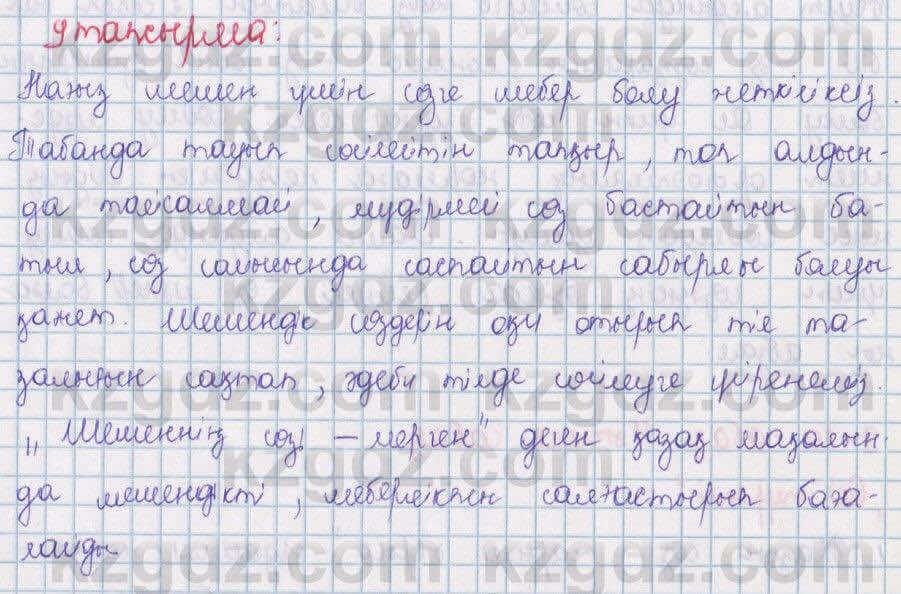 9 тапсырма:
Нағыз шешен үшін сөзге шебер болу жеткіліксіз.
Табанда тауып сөйлейтін тапқыр, топ алдын-
да тайсалмай, мүдірмей сөз бастайтын ба-
тыл, сөз сайысында саспайтын сабырлы болуы
қажет. Шешендік сөздерін оқи отырып тіл та-
залығын сақтап, әдеби тілде сөйлеуге үйренеміз.
„Шешеннің сөзі – мерген" деген қазақ мақалын-
да шешендікті, шеберлікпен салыстырып баға-
лайды
kzgdz.com